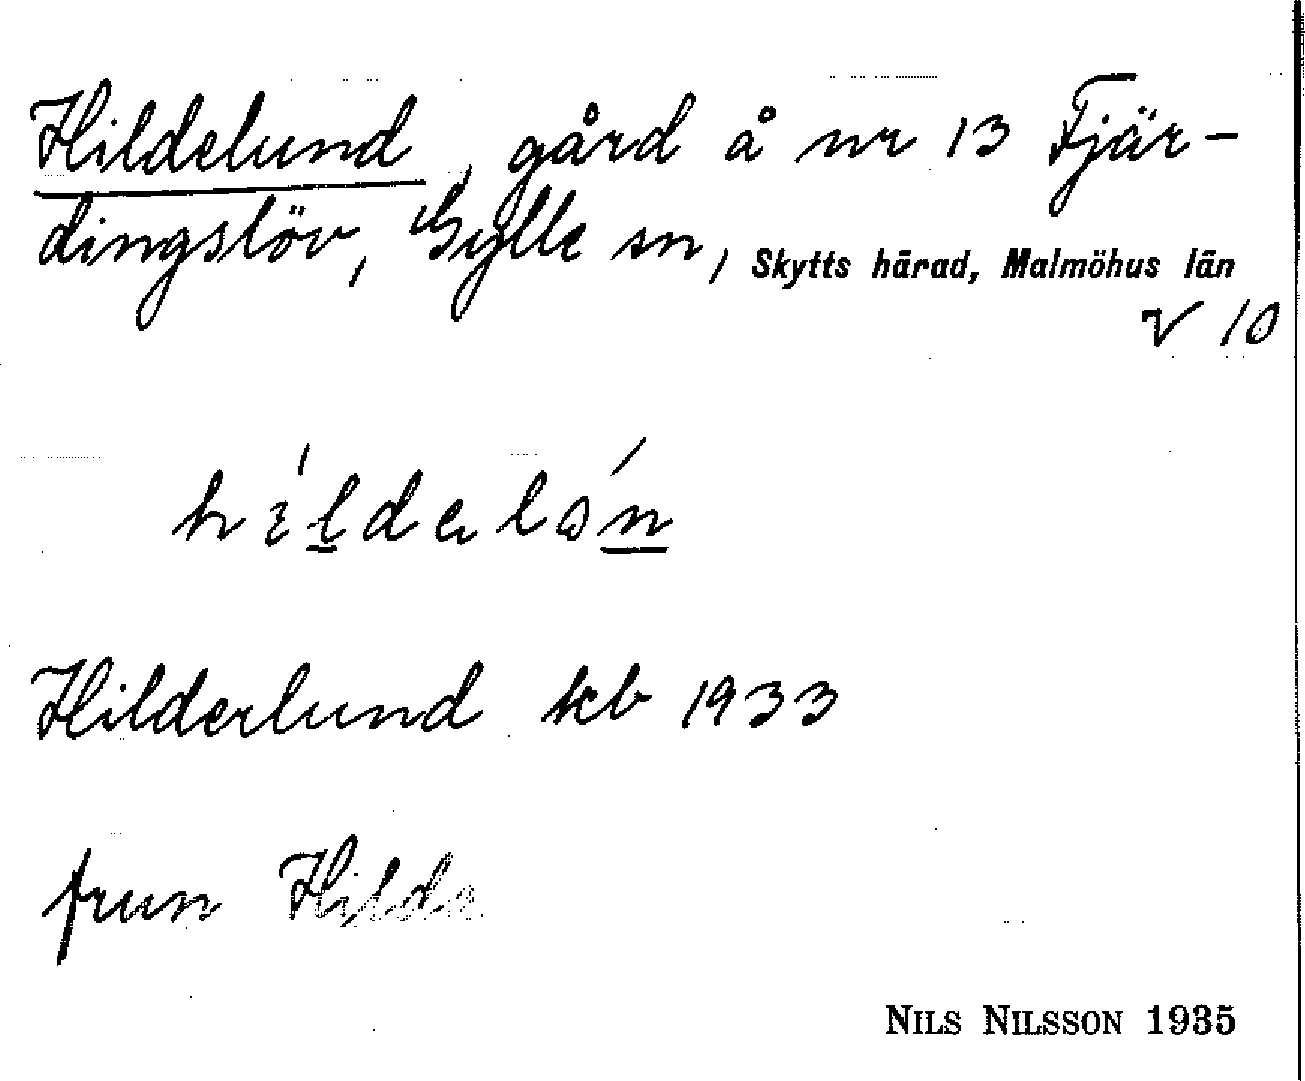 Hildelund, gård å nr 13 Fjär-
dingslöv, Gylle sn, Skytts härad, Malmöhus län
V 10
Hilderlund kb 1933
frun Hilda
NILS NILSSON 1935